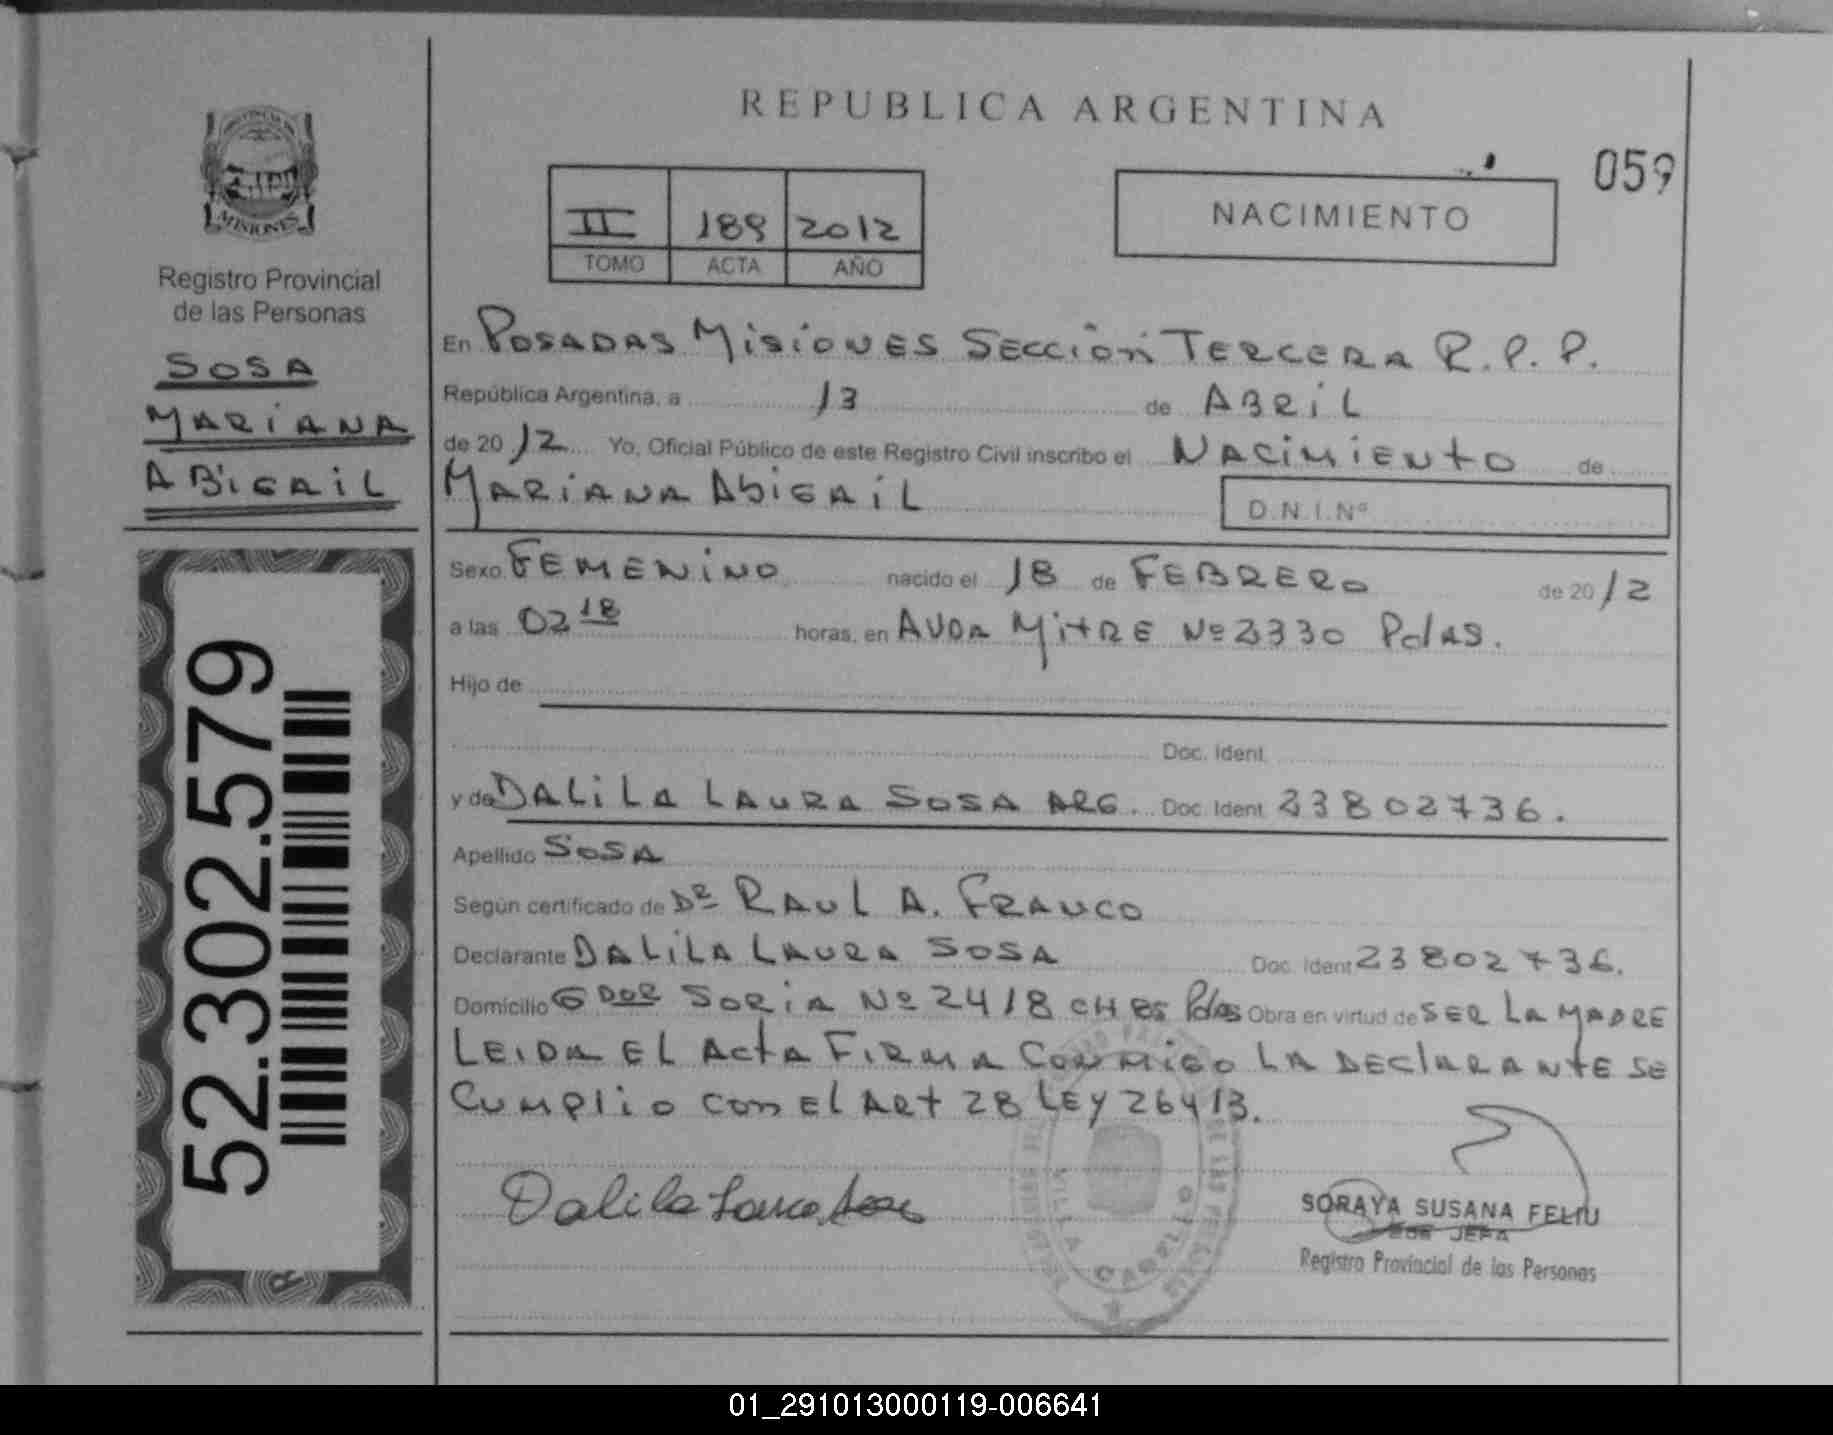 REPUBLICA ARGENTINA
059
II 189 2012
TOMO ACTA AÑO
NACIMIENTO
MISIONES
Registro Provincial
de las Personas
SOSA
MARIANA
ABIGAIL
52.302.579
En POSADAS MISIONES SECCIÓN TERCERA R.P.P.
República Argentina, a 13 de ABRIL
de 2012 Yo, Oficial Público de este Registro Civil inscribo el NACIMIENTO de
MARIANA ABIGAIL
D.N.I.Nº
Sexo FEMENINO nacido el 18 de FEBRERO de 2012
a las 02 18 horas, en AVDA MITRE Nº 2330 Pdas.
Hijo de
Doc. Ident.
y de DALILA LAURA SOSA ARG. Doc. Ident. 23802736.
Apellido SOSA
Según certificado de DR RAUL A. FRANCO
Declarante DALILA LAURA SOSA Doc. Ident 23802736.
Domicilio GDOR SORIA Nº 2418 CH 85 Pdas Obra en virtud de SER LA MADRE
LEIDA EL ACTA FIRMA CONMIGO LA DECLARANTE SE
CUMPLIO CON EL ART 28 LEY 26413.
Dalila Laura Sosa
VILLA CABELLO
SORAYA SUSANA FELIU
JEFA
Registro Provincial de las Personas
01_291013000119-006641